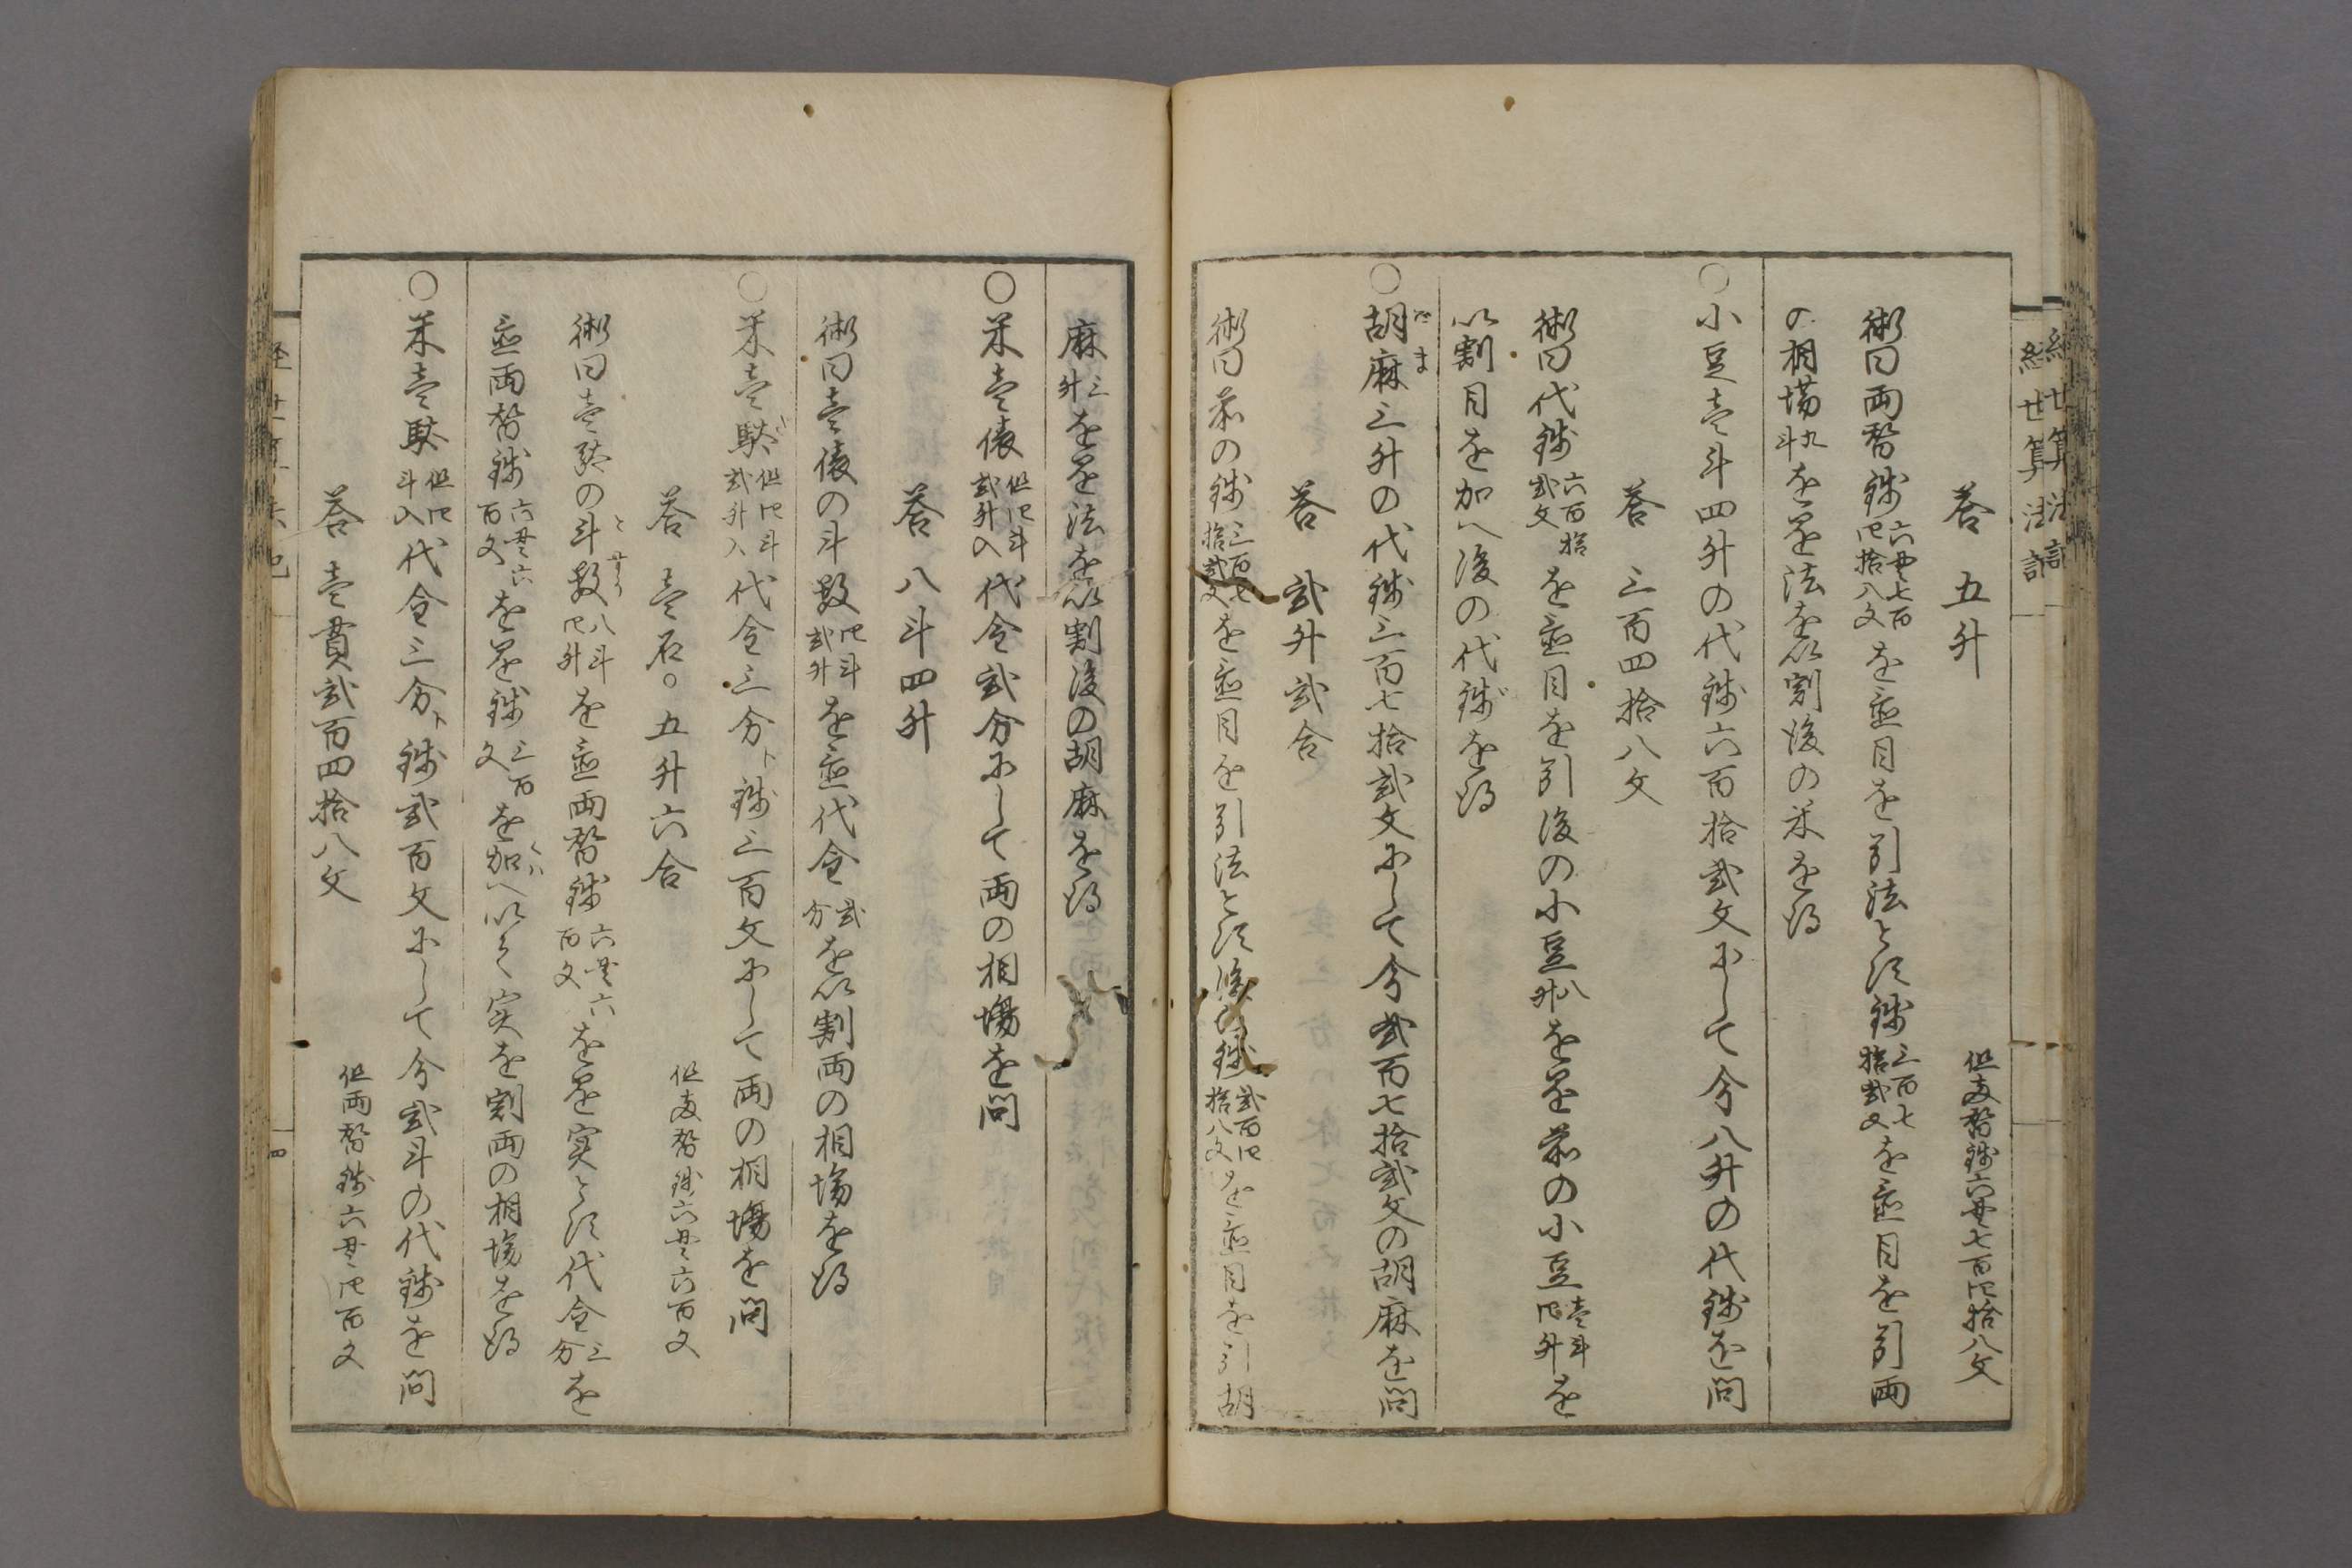 答 五升 但両替銭六貫七百四拾八文
術曰両替銭六貫七百四拾八文を置目を引法とす銭三百七拾弐文を置目を引両
の相場九斗を置法を以割後の米を得
○小豆壱斗四升の代銭六百拾弐文にして今八升の代銭を問
答 三百四拾八文
術曰代銭六百拾弐文を置目を引後の小豆八升を置前の小豆壱斗四升を
以割目を加へ後の代銭を得
○胡麻三升の代銭三百七拾弐文にして今弐百七拾弐文の胡麻を問
答 弐升弐合
術曰前の銭三百七拾弐文を置目を引法とす後の銭弐百四拾八文を置目を引胡
麻三升を置法を以割後の胡麻を得
○米壱俵但四斗弐升入代金弐分にして両の相場を問
答 八斗四升
術曰壱俵の斗数四斗弐升を置代金弐分を以割両の相場を得
○米壱駄但四斗弐升入代金三分ト銭三百文にして両の相場を問
答 壱石○五升六合 但両替銭六貫六百文
術曰壱駄の斗数八斗四升を置両替銭六貫六百文を置実とす代金三分を
置両替銭六貫六百文を置銭三百文を加へ以て実を割両の相場を得
○米壱駄但四斗入代金三分ト銭弐百文にして今弐斗の代銭を問
答 壱貫弐百四拾八文 但両替銭六貫四百文
経世算法記
四